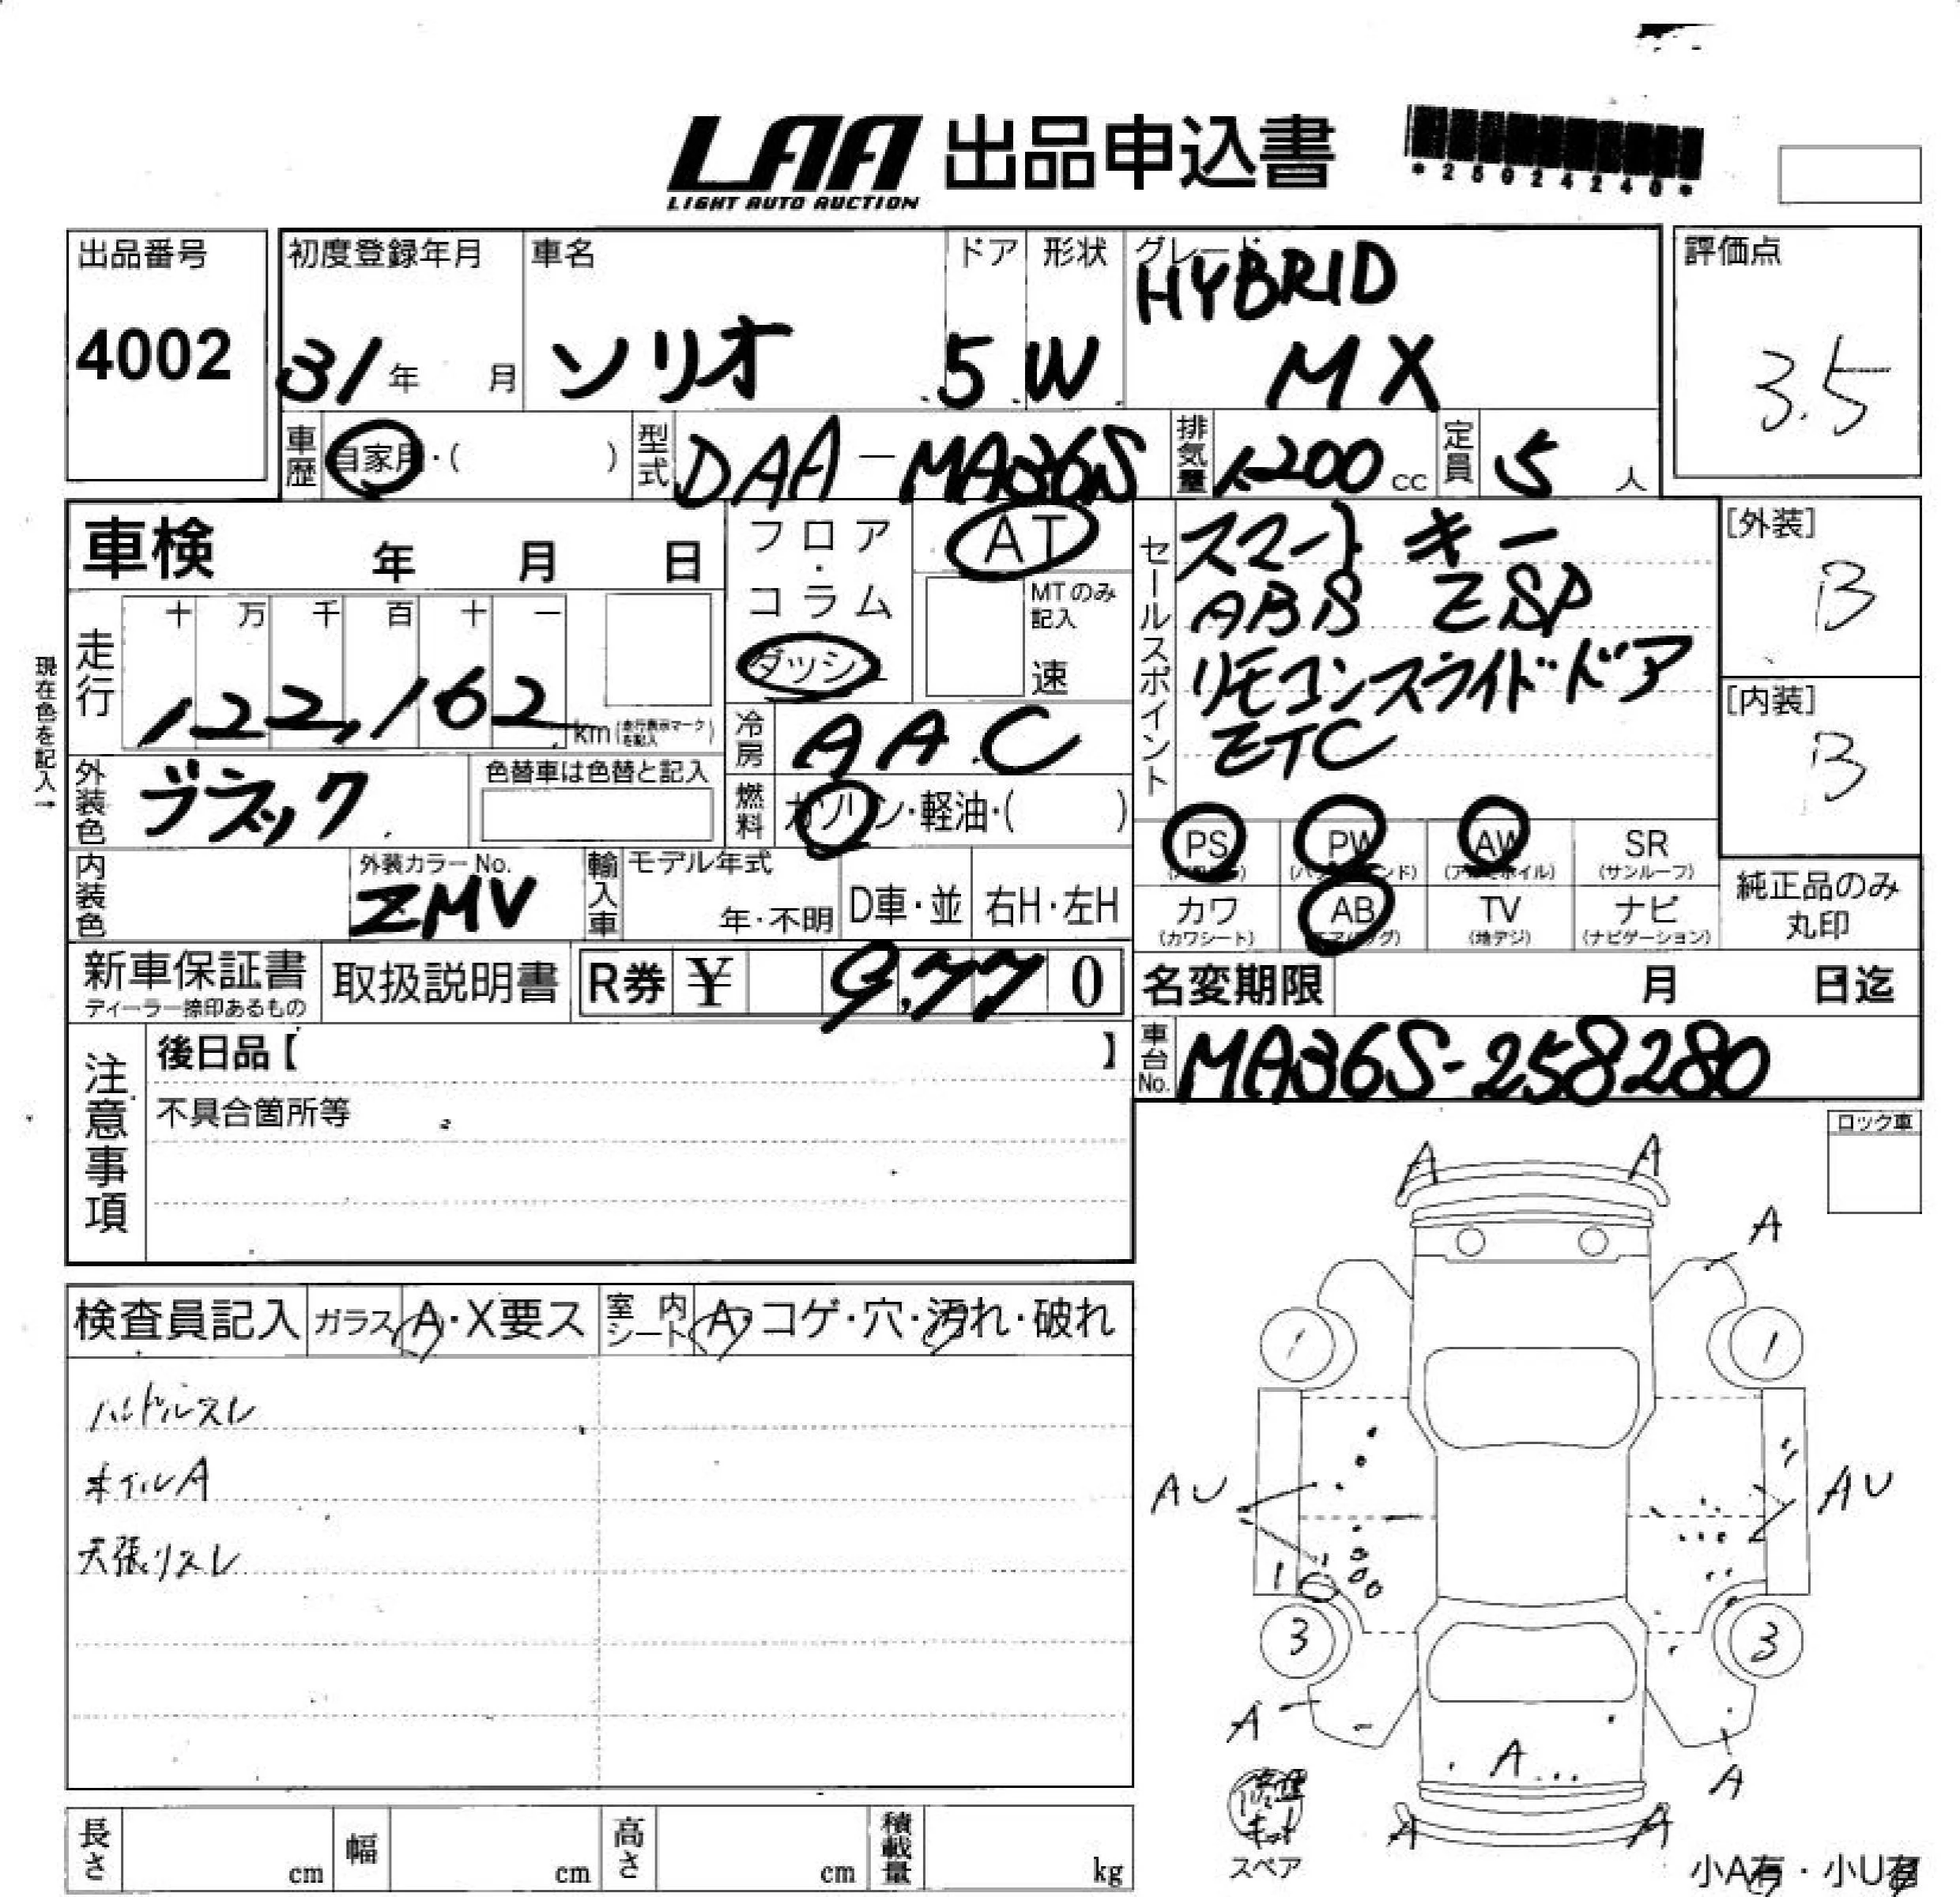 LAA 出品申込書
LIGHT AUTO AUCTION
*25024240*
出品番号
4002
初度登録年月
31年 月
車名
ソリオ
ドア
5
形状
W
グレード
HYBRID
MX
評価点
3.5
車歴
自家用・( )
型式
DAA-MA36S
排気量
1,200 cc
定員
5 人
車検 年 月 日
フロア・コラム
ダッシュ
AT
MTのみ記入
速
セールスポイント
スマートキー
ABS ESP
リモコンスライドドア
ETC
[外装]
B
[内装]
B
現在色を記入→
走行
十 万 千 百 十 一
122,162 km (走行表示マークを記入)
冷房
AAC
外装色
ブラック
色替車は色替と記入
燃料
ガソリン・軽油・( )
PS
PW
AW
(アルミホイル)
SR
(サンルーフ)
内装色
外装カラーNo.
ZMV
輸入車
モデル年式
年・不明
D車・並
右H・左H
カワ
(カワシート)
AB
(エアバッグ)
TV
(地デジ)
ナビ
(ナビゲーション)
純正品のみ
丸印
新車保証書
ディーラー捺印あるもの
取扱説明書
R券 ¥ 9,770
名変期限 月 日迄
車台No.
MA36S-258280
注意事項
後日品【 】
不具合箇所等
ロック車
検査員記入
ガラス
A・X要ス
室内
シート
A・コゲ・穴・汚れ・破れ
ハンドルスレ
ホイルA
天張リスレ
A A
A
1 1
AU AU
1
3 3
A
A
A
A A
修理キット
スペア
小A有・小U有
長さ cm
幅 cm
高さ cm
積載量 kg